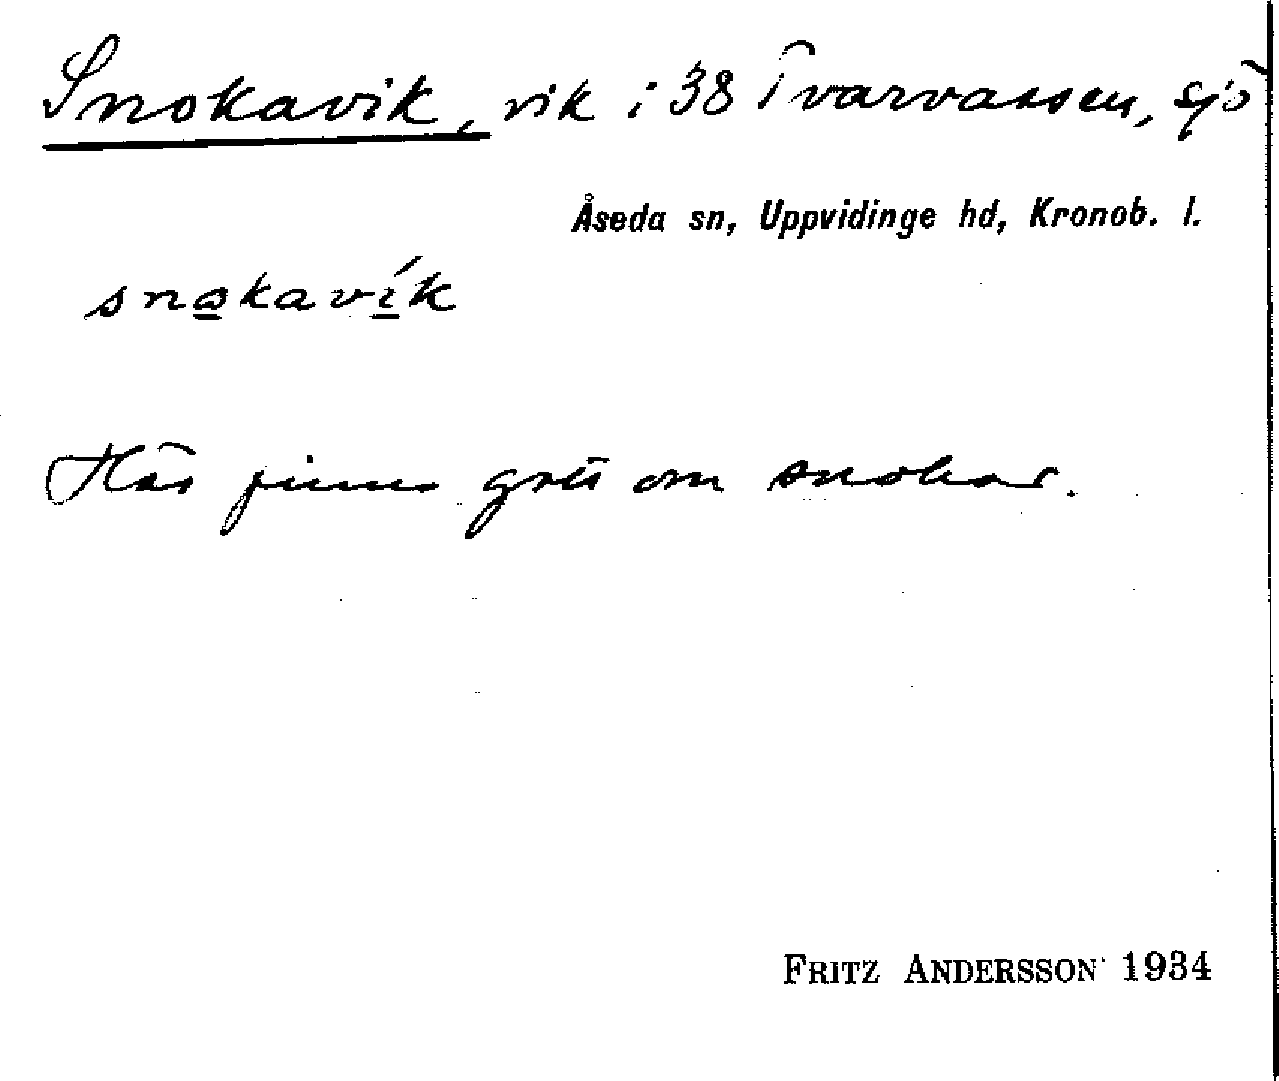 Snokavik, vik i 38 Tvarvassen, sjö
Åseda sn, Uppvidinge hd, Kronob. l.
snokavík
Här finns gott om snokar.
FRITZ ANDERSSON 1934